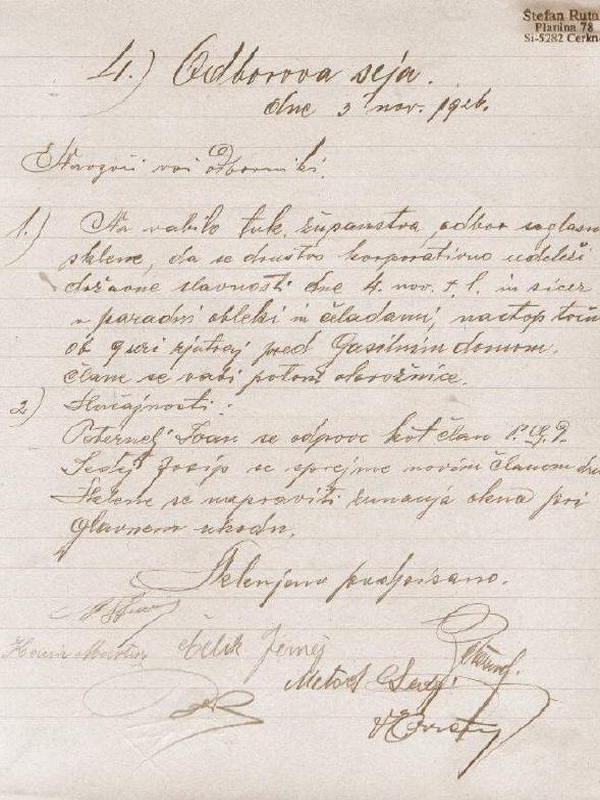 Štefan Ruta
Planina 78
Si-5282 Cerkn
4.) Odborova seja.
dne 3 nov. 1926.
Navzoči vsi odborniki.
1.) Na vabilo tuk. županstva, odbor soglasn
sklene, da se društvo korporativno udeleži
državne slavnosti dne 4. nov. t. l. in sicer
v paradni obleki in čeladami, nastop točn
ob 9 uri zjutraj pred Gasilnim domom.
Člane se vabi potom okrožnice.
2) Slučajnosti:
Peternelj Ivan se odpove kot član P.G.D.
Sedej Josip se sprejme novim članom dru
Sklene se napraviti zunanja okna pri
glavnem uhodu.
Sklenjeno podpisano.
Čelik Jernej
Metod Sedej